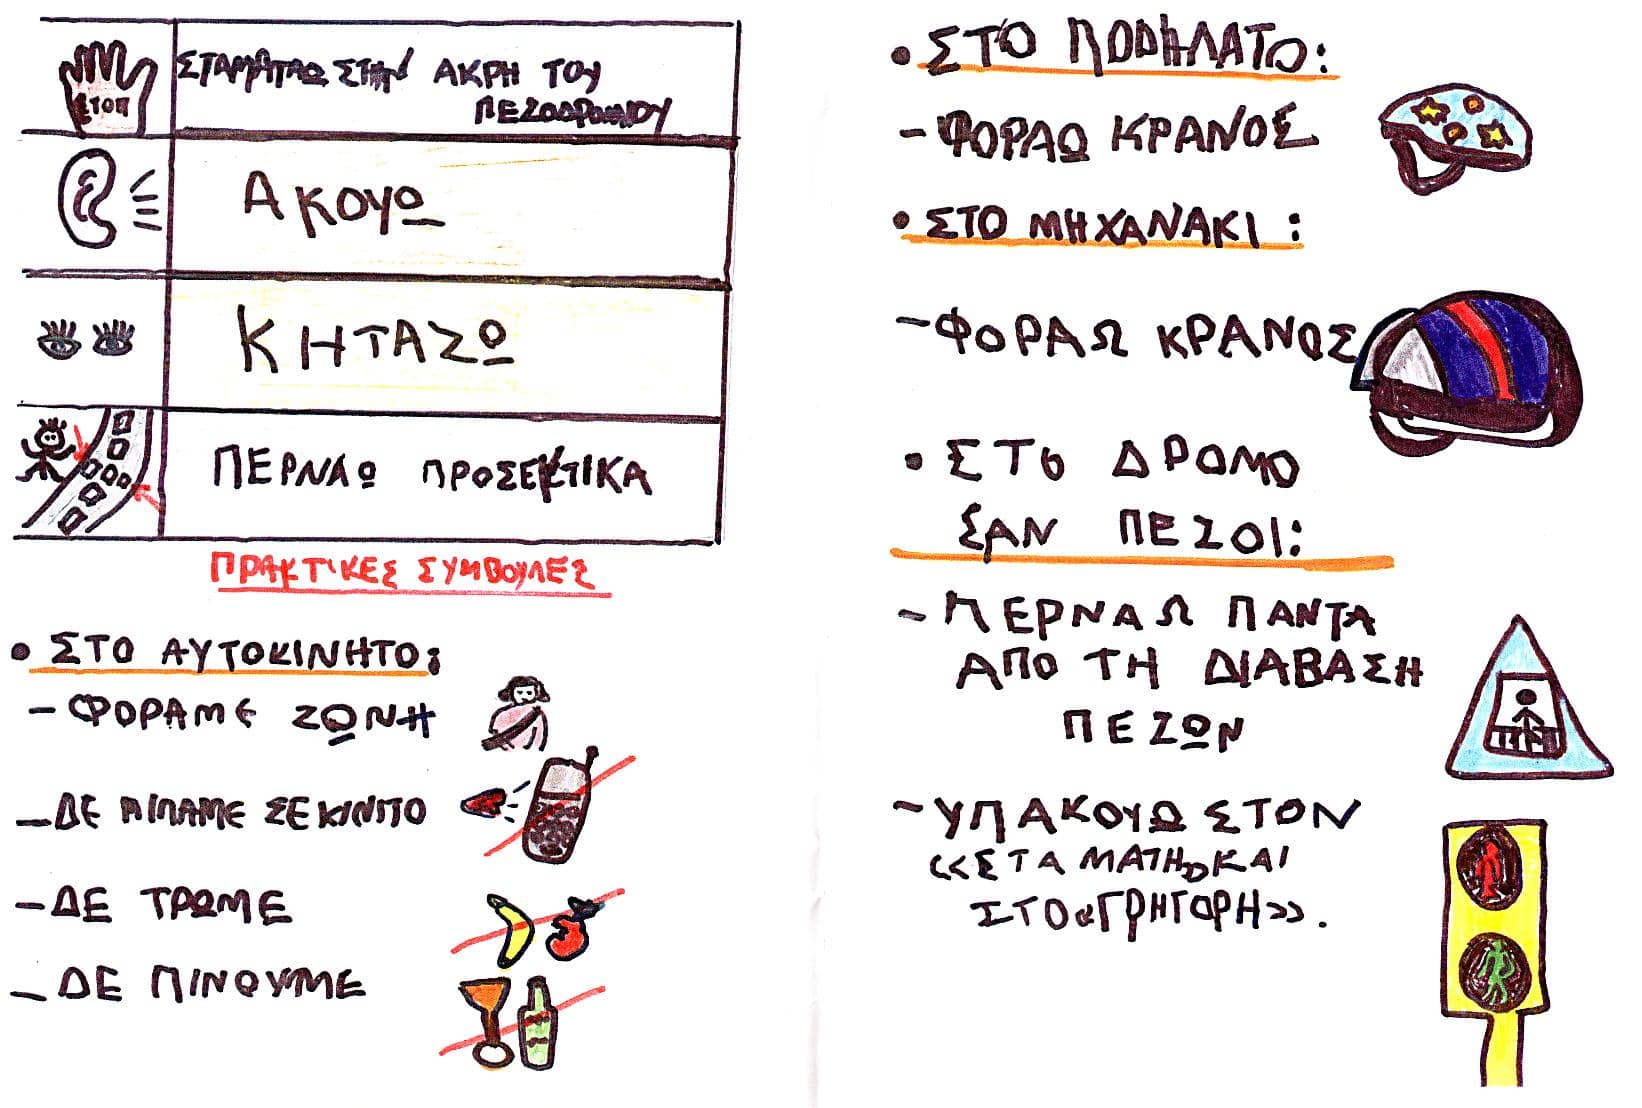 ΣΤΟΠ
ΣΤΑΜΑΤΑΩ ΣΤΗΝ ΑΚΡΗ ΤΟΥ
ΠΕΖΟΔΡΟΜΙΟΥ
ΑΚΟΥΩ
ΚΗΤΑΖΩ
ΠΕΡΝΑΩ ΠΡΟΣΕΚΤΙΚΑ
ΠΡΑΚΤΙΚΕΣ ΣΥΜΒΟΥΛΕΣ
• ΣΤΟ ΑΥΤΟΚΙΝΗΤΟ:
- ΦΟΡΑΜΕ ΖΩΝΗ
- ΔΕ ΜΙΛΑΜΕ ΣΕ ΚΙΝΙΤΟ
- ΔΕ ΤΡΩΜΕ
- ΔΕ ΠΙΝΟΥΜΕ
• ΣΤΟ ΠΟΔΗΛΑΤΟ:
- ΦΟΡΑΩ ΚΡΑΝΟΣ
• ΣΤΟ ΜΗΧΑΝΑΚΙ :
- ΦΟΡΑΩ ΚΡΑΝΟΣ
• ΣΤΟ ΔΡΟΜΟ
ΣΑΝ ΠΕΖΟΙ:
- ΠΕΡΝΑΩ ΠΑΝΤΑ
ΑΠΟ ΤΗ ΔΙΑΒΑΣΗ
ΠΕΖΩΝ
- ΥΠΑΚΟΥΩ ΣΤΟΝ
«ΣΤΑΜΑΤΗ» ΚΑΙ
ΣΤΟ «ΓΡΗΓΟΡΗ».